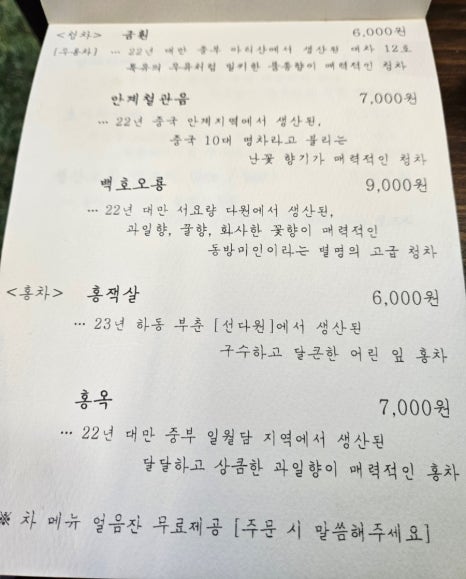 <청차> 금훤 6,000원
[우롱차] … 22년 대만 중부 아리산에서 생산된 대차 12호
특유의 우유처럼 밀키한 풍통향이 매력적인 청차
안계철관음 7,000원
… 22년 중국 안계지역에서 생산된,
중국 10대 명차라고 불리는
난꽃 향기가 매력적인 청차
백호오룡 9,000원
… 22년 대만 서요량 다원에서 생산된,
과일향, 꿀향, 화사한 꽃향이 매력적인
동방미인이라는 별명의 고급 청차
<홍차> 홍잭살 6,000원
… 23년 하동 부춘 [선다원]에서 생산된
구수하고 달큰한 어린 잎 홍차
홍옥 7,000원
… 22년 대만 중부 일월담 지역에서 생산된
달달하고 상큼한 과일향이 매력적인 홍차
※ 차 메뉴 얼음잔 무료제공 [주문 시 말씀해주세요]